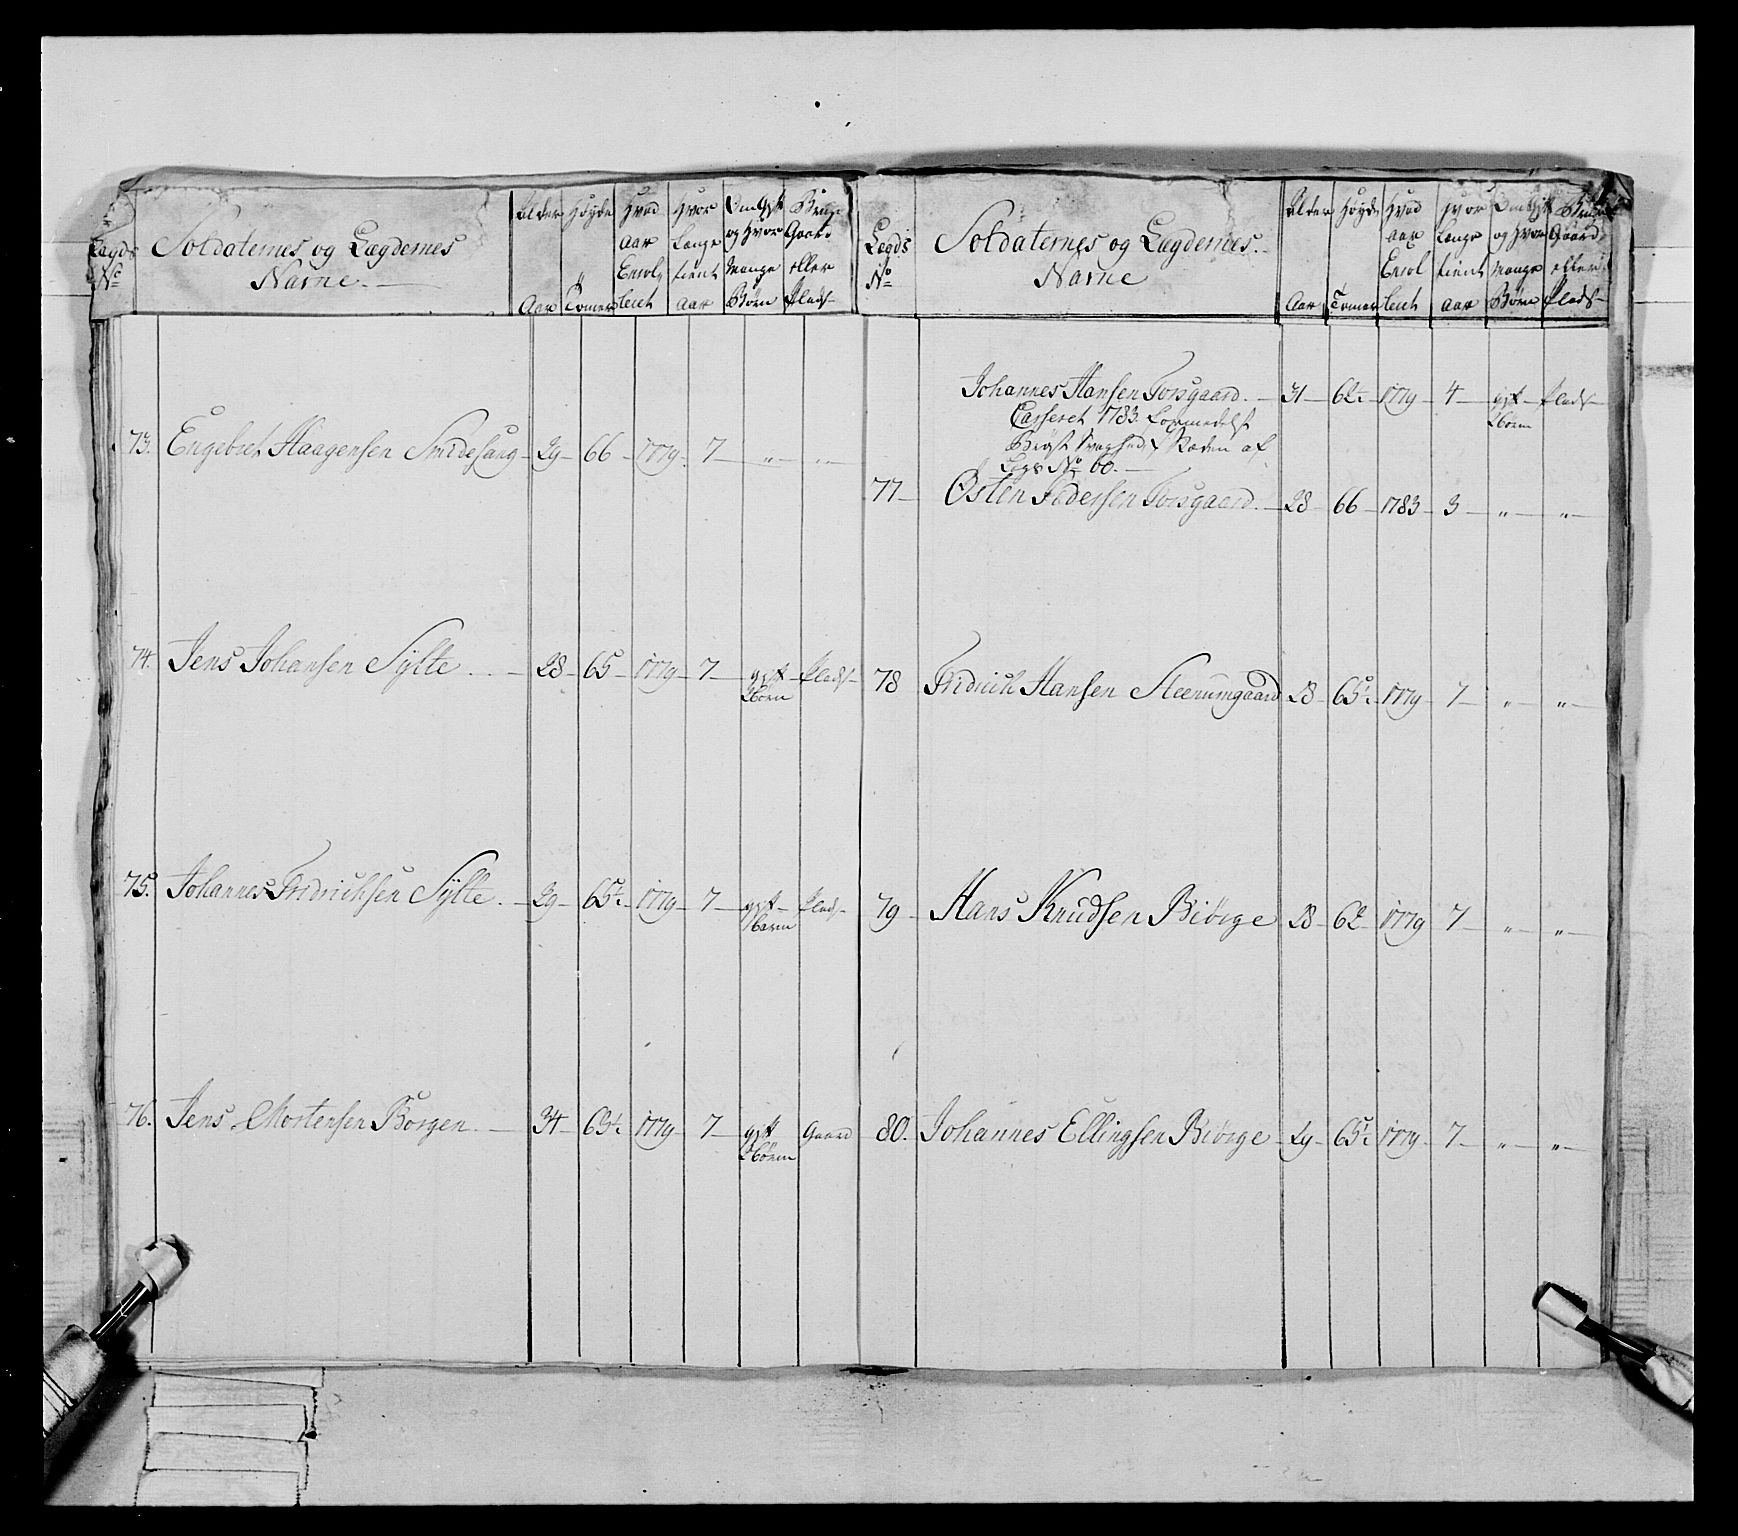 Lægds
No
Soldaternes og Lægdernes
Navne
Alder
Aar
Høyde
Tomer
Hvad
Aar
Enrol
lert
Hvor
Længe
tient
Aar
Om Gift
og Hvor
Mange
Børn
Bruger
Gaard
eller
Plads
73. Engebret Haagensen Smidesang 29 66 1779 7 " "
74. Jens Johansen Sylte 28 65 1779 7 gift Plads
2 Børn
75. Johannes Fridrichsen Sylte 29 65½ 1779 7 gift Plads
1 Barn
76. Jens Mortensen Borgen 34 63½ 1779 7 gift Gaard
2 Børn
Lægds
No
Soldaternes og Lægdernes
Navne
Alder
Aar
Høyde
Tomer
Hvad
Aar
Enrol
lert
Hvor
Længe
tient
Aar
Om Gift
og Hvor
Mange
Børn
Bruger
Gaard
eller
Plads
Johannes Hansen Forsgaard 31 62½ 1779 4 gift Plads
2 Børn
Casseret 1783 formedelst
Bryst Svaghed af
Lægd No 60.
77 Østen Pedersen Forsgaard 28 66 1783 3 " "
78 Fridrich Hansen Steerumgaard 28 65½ 1779 7 " "
79 Hans Knudsen Biørge 28 62 1779 7 " "
80. Johannes Ellingsen Biørge 29 65½ 1779 7 " "